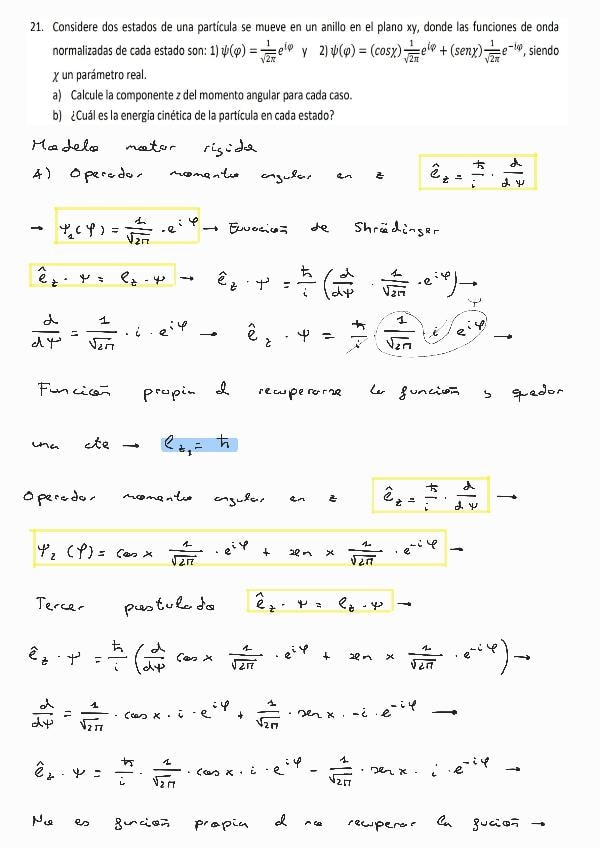 21. Considere dos estados de una partícula se mueve en un anillo en el plano xy, donde las funciones de onda
normalizadas de cada estado son: 1) ψ(φ) = 1/√2π e^{iφ} y 2) ψ(φ) = (cosχ) 1/√2π e^{iφ} + (senχ) 1/√2π e^{-iφ}, siendo
χ un parámetro real.
a) Calcule la componente z del momento angular para cada caso.
b) ¿Cuál es la energía cinética de la partícula en cada estado?
Modelo rotor rígido
A) Operador momento angular en z ê_z = ħ/i · d/dψ
→ ψ_1(φ) = 1/√2π · e^{iφ} → Ecuación de Shrödinger
ê_z · ψ = e_z · ψ → ê_z · ψ = ħ/i (d/dψ · 1/√2π · e^{iφ}) →
d/dψ = 1/√2π · i · e^{iφ} → ê_z · ψ = ħ/i 1/√2π i e^{iφ} ψ →
Función propia al recuperarse la función y quedar
una cte → e_{z,1} = ħ
Operador momento angular en z ê_z = ħ/i · d/dψ →
ψ_2 (φ) = cos x 1/√2π · e^{iφ} + sen x 1/√2π · e^{-iφ} →
Tercer postulado ê_z · ψ = e_z · ψ →
ê_z · ψ = ħ/i (d/dψ cos x 1/√2π · e^{iφ} + sen x 1/√2π · e^{-iφ}) →
d/dψ = 1/√2π · cos x · i · e^{iφ} + 1/√2π · sen x · -i · e^{-iφ} →
ê_z · ψ = ħ/i · 1/√2π · cos x · i · e^{iφ} - 1/√2π · sen x · i · e^{-iφ} →
No es función propia al no recuperar la fución →